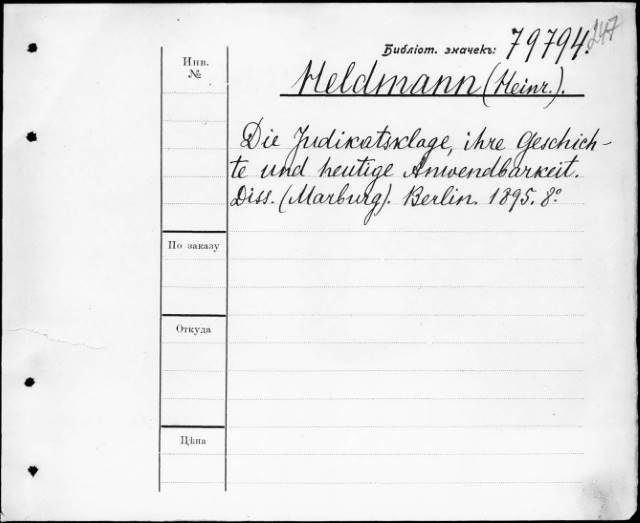 Библіот. значекъ: 79794.
247
Инв.
№
Meldmann (Heinr.).
Die Judikatsklage, ihre Geschich-
te und heutige Anwendbarkeit.
Diss. (Marburg). Berlin. 1895. 8º
По заказу
Откуда
Цѣна